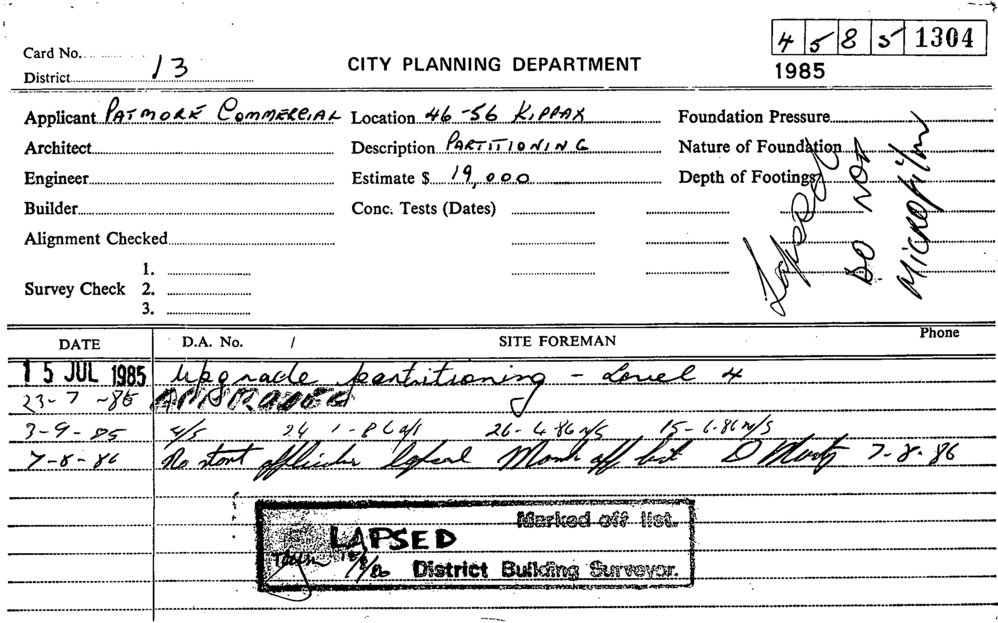 4 5 8 5 1304
1985
Card No.
District 13
CITY PLANNING DEPARTMENT
Applicant PATMORE COMMERCIAL Location 46-56 KIPPAX Foundation Pressure
Architect Description PARTITIONING Nature of Foundation
Engineer Estimate $ 19,000 Depth of Footings
Builder Conc. Tests (Dates)
Alignment Checked
Lapsed
DO NOT
MICROFILM
1.
Survey Check 2.
3.
DATE D.A. No. / SITE FOREMAN Phone
15 JUL 1985 Upgrade partitioning - Level 4
23-7-85 APPROVED
3-9-85 N/S 26-6-86 N/S N/S
7-8-86 No start lapsed Mark off list 7-8-86
Marked off list.
LAPSED
District Building Surveyor.